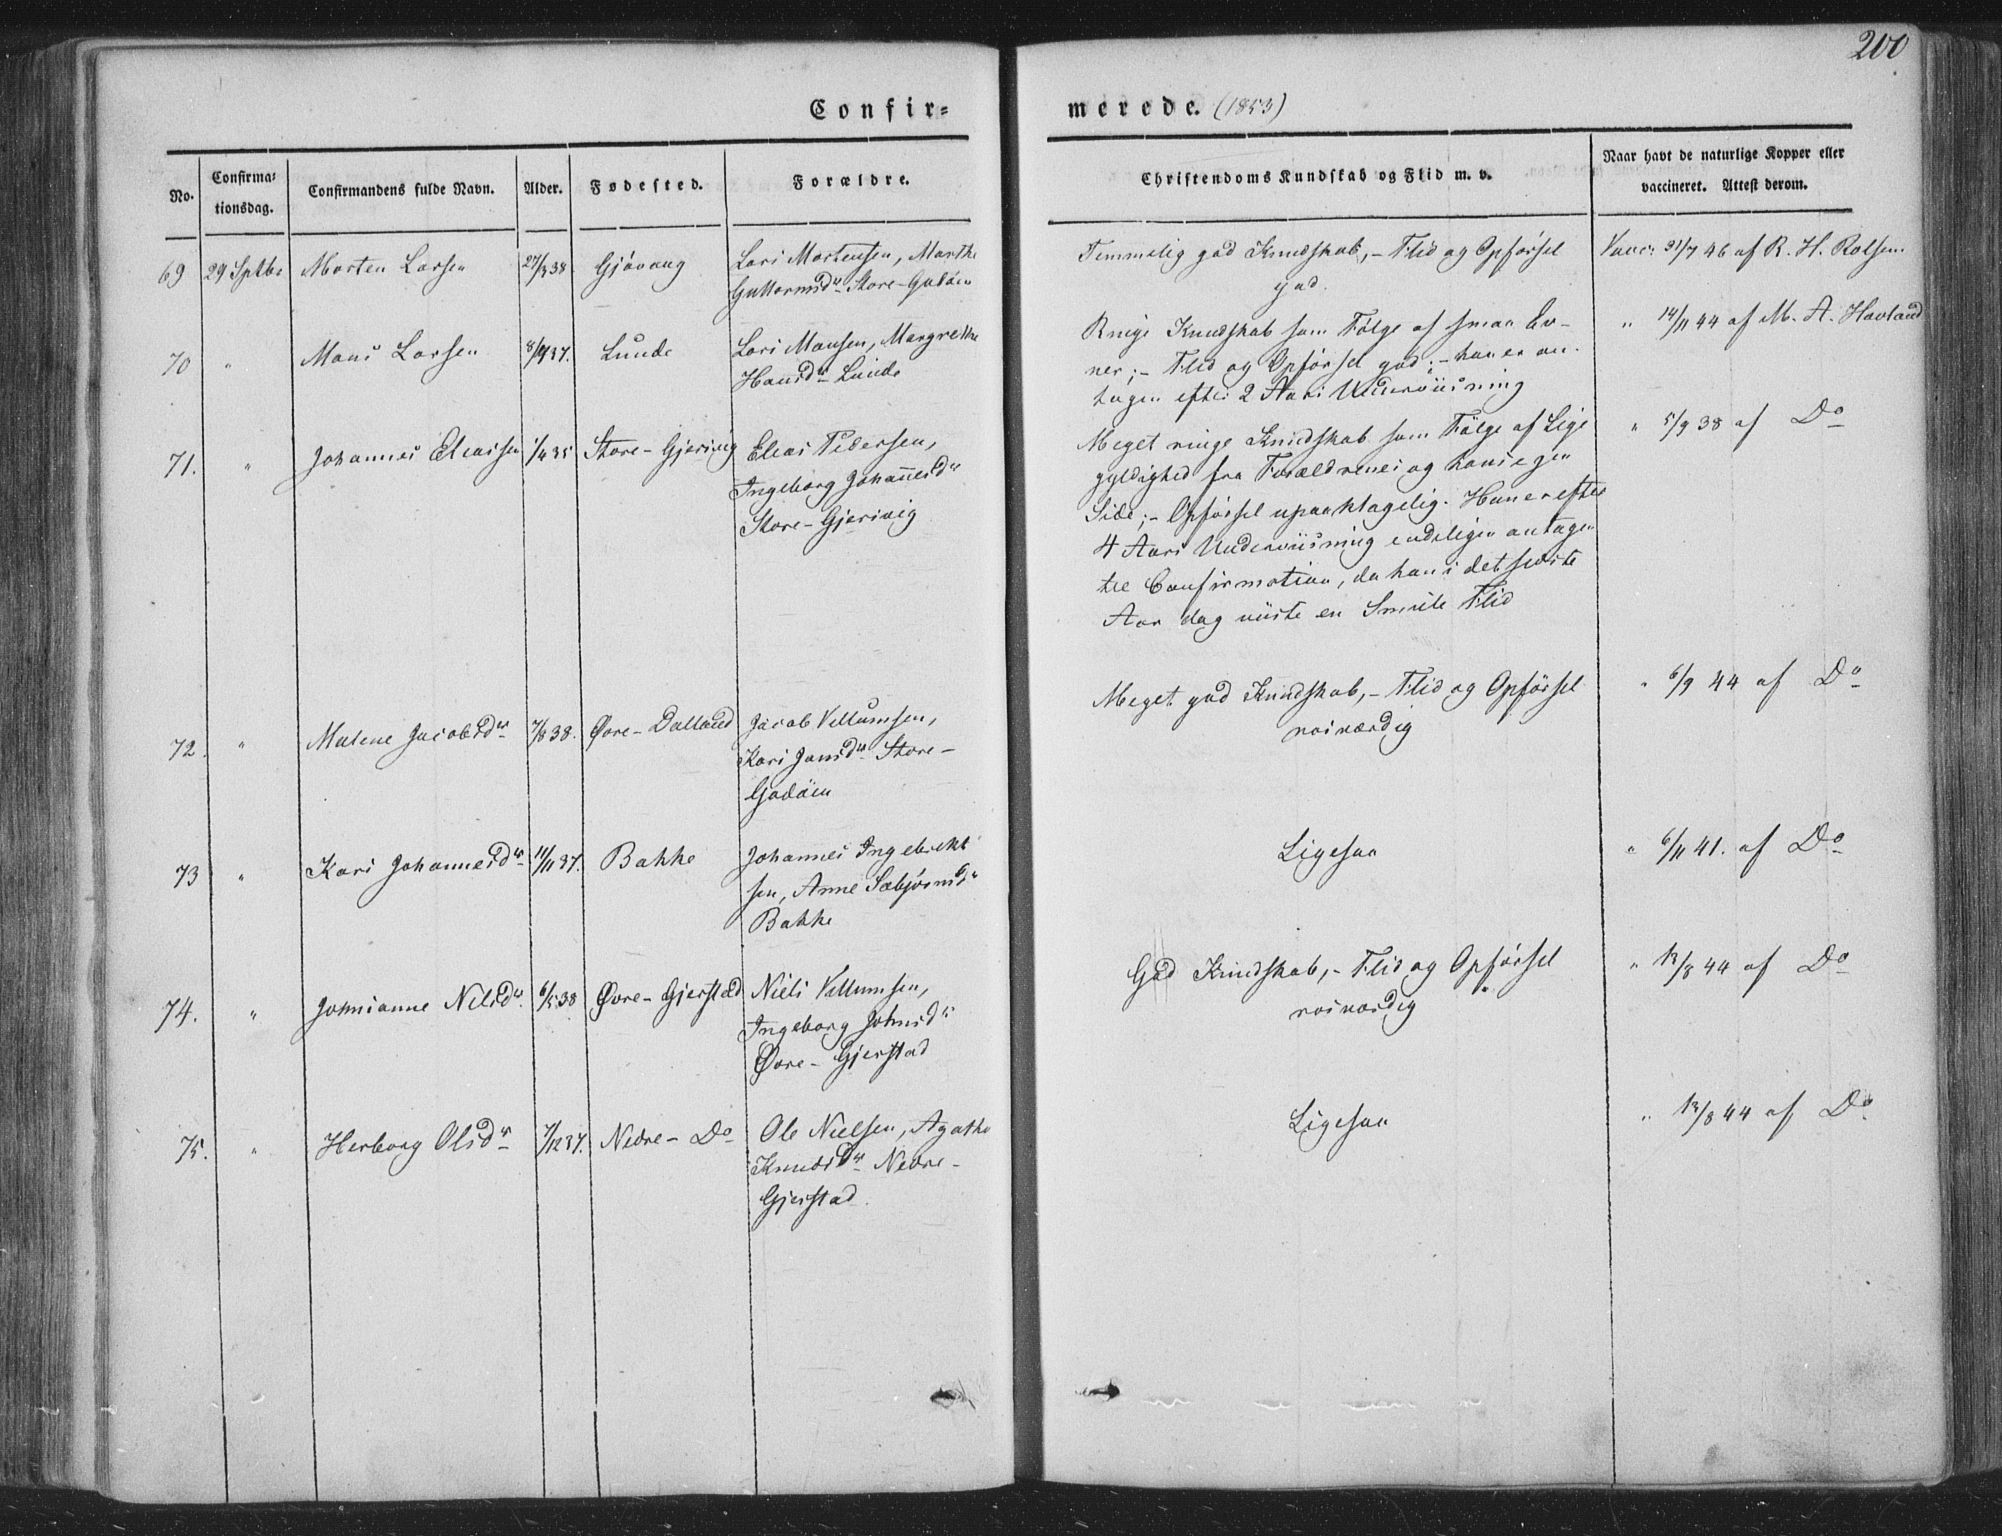 200
Confir=
merede. (1853)
No.
Confirma=
tionsdag.
Confirmandens fulde Navn.
Alder.
Fødested.
Forældre.
Christendoms Kundskab og Flid m. v.
Naar havt de naturlige Kopper eller
vaccineret. Attest derom.
69 29 Septbr Morten Larsen 27/3 38 Gjøvaag
Lars Mortensen, Marthe
Guttormsdr Store-Godøen
Temmelig god Kundskab, - Flid og Opførsel
god.
Vacc: 31/7 46 af R. H. Rolfsen
70 " Mons Larsen 8/9 37. Lunde
Lars Monsen, Margrethe
Hansdr Lunde
Ringe Kundskab som Følge af smaa Ev-
ner; - Flid og Opførsel god; - han er an-
tagen efter 2 Aars Underviisning
" 14/11 44 af M. A. Havland
71. " Johannes Eliassen 1/4 35 Store-Gjervig
Elias Pedersen,
Ingeborg Johannesdr
Store-Gjervig
Meget ringe Kundskab som Følge af Lige
gyldighed fra Forældrenes og hans egen
Side; - Opførsel upaaklagelig. Han er efter
4 Aars Underviisning endeligen antagen
til Confirmation, da han i det sidste
Aar dog viiste en Smule Flid
" 5/9 38 af Do
72. " Malene Jacobsdr 7/8 38. Øvre-Dalland
Jacob Villumsen,
Kari Jansdr Store-
Godøen
Meget god Kundskab, - Flid og Opførsel
rosværdig
" 6/9 44 af Do
73 " Kari Johannesdr 11/11 37. Bakke
Johannes Ingebrikt
sen, Anne Sæbjørnsdr
Bakke
Ligesaa
" 6/11 41. af Do
74. " Johnsanne Nilsdr. 6/5 38 Øvre-Gjerstad
Niels Villumsen,
Ingeborg Johnsdr
Øvre-Gjerstad
God Kundskab, - Flid og Opførsel
rosværdig
" 12/8 44 af Do
75. " Herborg Olsdr 7/12 37. Nedre- Do
Ole Nielsen, Agatha
Knudsdr Nedre-
Gjerstad.
Ligesaa
" 12/8 44 af Do